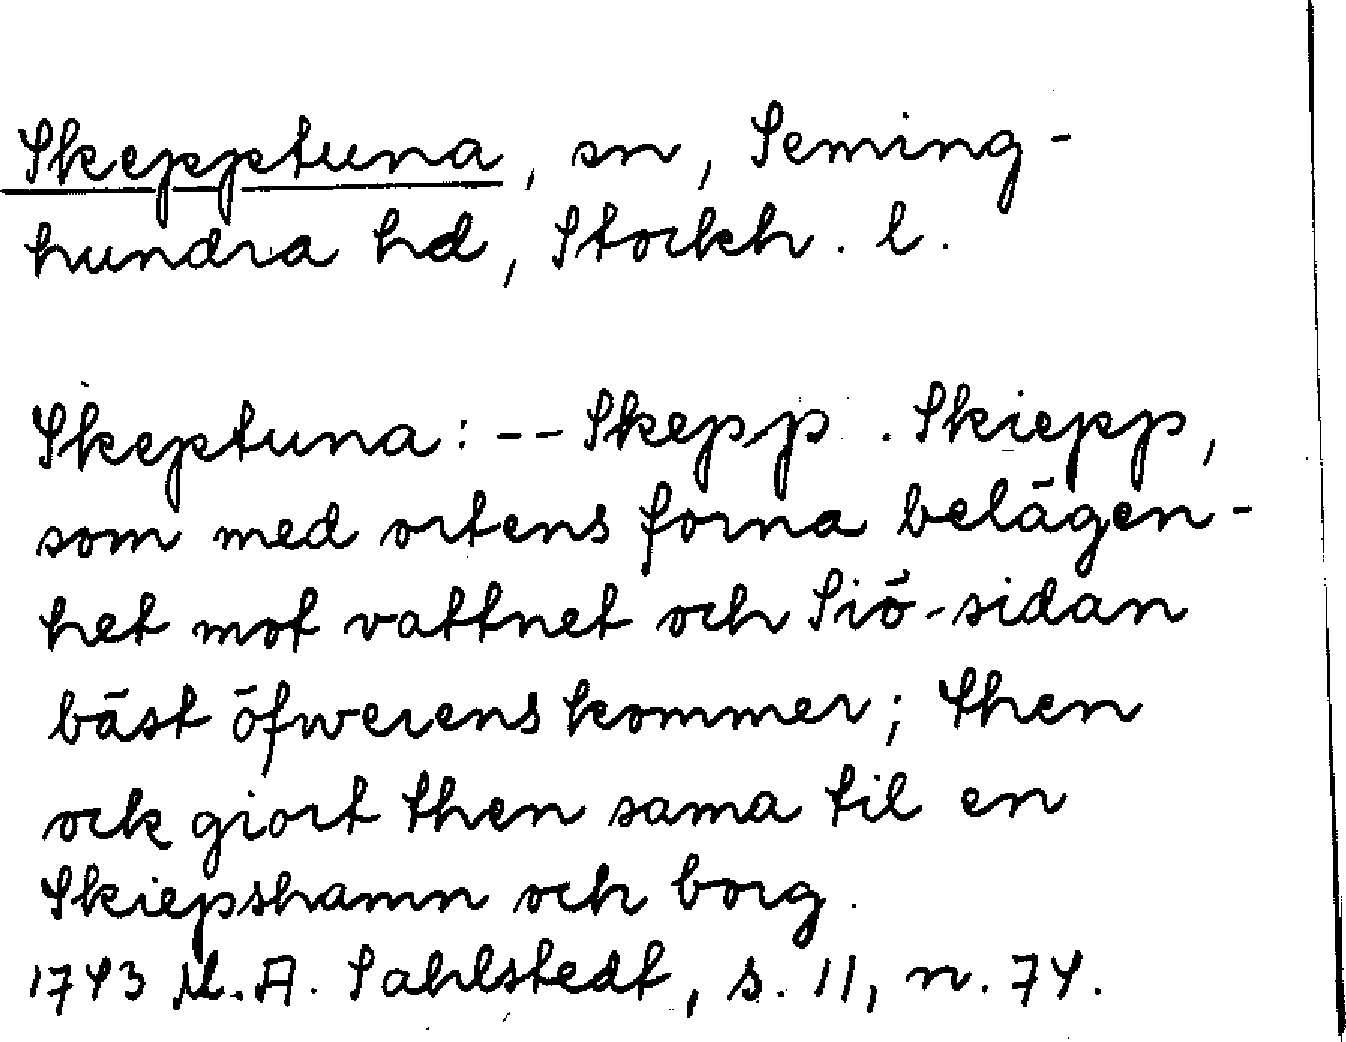 Skepptuna, sn, Seming-
hundra hd, Stockh. l.
Skeptuna: -- Skepp. Skiepp,
som med ortens forna belägen-
het mot vattnet och Siö-sidan
bäst öfwerens kommer; then
ock giort then sama til en
Skiepshamn och borg.
1743 M. A. Sahlstedt, s. 11, n. 74.